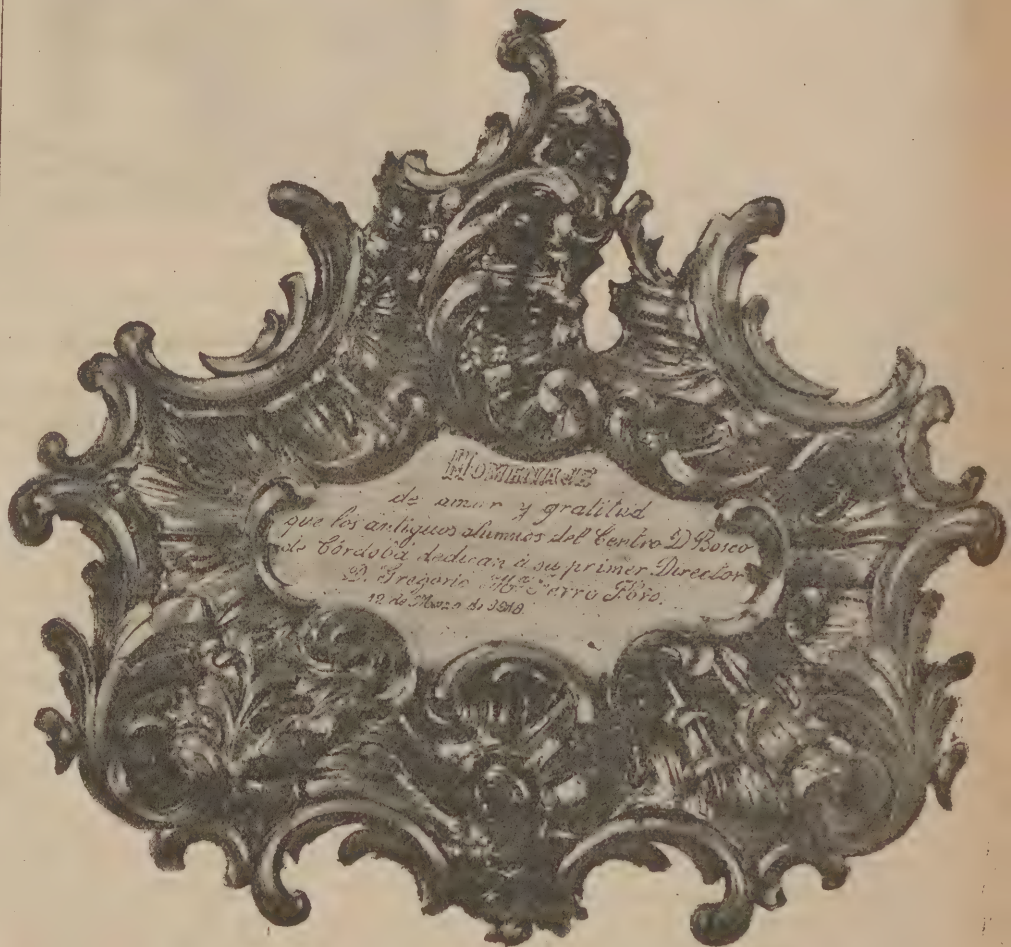 HOMENAJE
de amor y gratitud
que los antiguos alumnos del Centro D Bosco
de Córdoba dedican á su primer Director
D. Gregorio Mª Ferro
12 de Marzo de